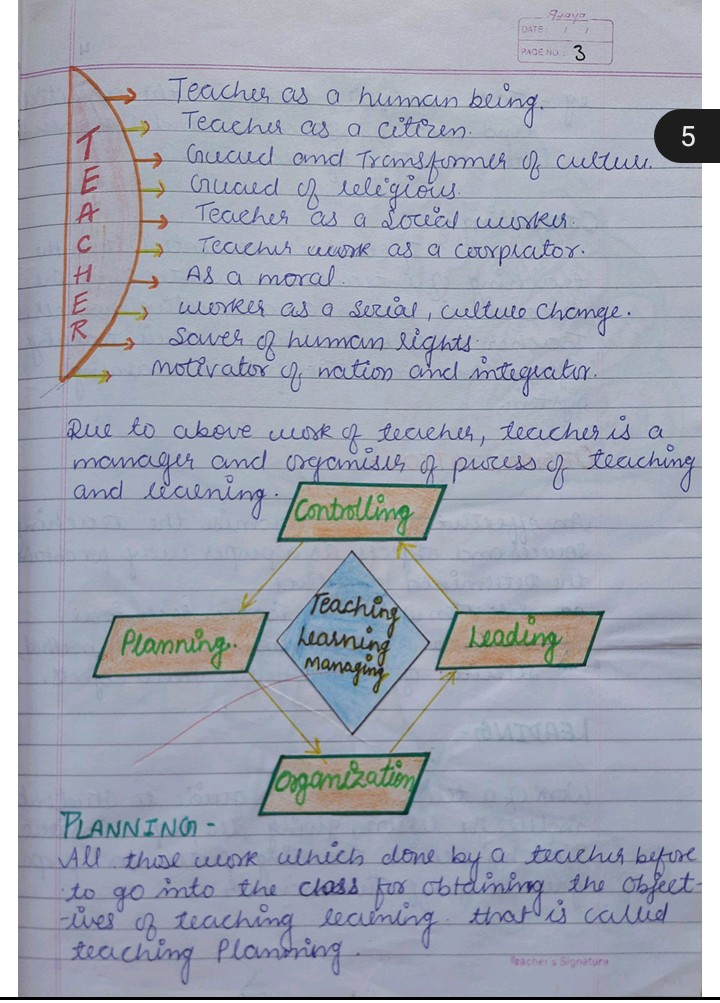 Ajaya
DATE: / /
PAGE NO.: 3
5
TEACHER
Teacher as a human being.
Teacher as a citizen.
Gruaed and Transformer of culture.
Gruaed of religious.
Teacher as a social worker.
Teacher work as a coorpiator.
As a moral.
worker as a social, culture change.
Saver of human rights.
motivator of nation and integrator.
Due to above work of teacher, teacher is a
manager and organiser of process of teaching
and learning.
Controlling
Teaching
Learning
managing
Planning.
Leading
Organization
PLANNING -
All those work which done by a teacher before
to go into the class for obtaining the object-
-ives of teaching learning that is called
teaching Planning.
Teacher's Signature